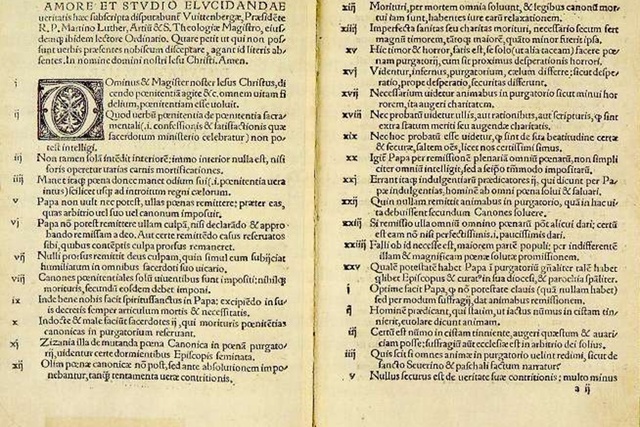 AMORE ET STUDIO ELUCIDANDAE
ueritatis hæc subscripta disputabunť Vuittenbergæ, Præsidẽte
R. P. Martino Luther, Artiũ & S. Theologiæ Magistro, eius-
demq; ibidem lectore Ordinario. Quare petit ut qui non pos-
sunt uerbis præsentes nobiscum disceptare, agant id literis ab-
sentes. In nomine domini nostri Iesu Christi. Amen.
i DOminus & Magister noster Iesus Christus, di
cendo pœnitentiã agite &c. omnem uitam fi
delium, pœnitentiam esse uoluit.
ij Quod uerbũ pœnitentia de pœnitentia sacra
mentali (.i. confessionis & satisfactionis quæ
sacerdotum ministerio celebratur) non po-
test intelligi.
iij Non tamen solã intẽdit interiorẽ: immo interior nulla est, nisi
foris operetur uarias carnis mortificationes.
iiij Manet itaq; pœna donec manet odium sui (.i. pœnitentia uera
intus) scilicet usq; ad introitum regni cælorum.
v Papa non uult nec potest, ullas pœnas remittere: præter eas,
quas arbitrio uel suo uel canonum imposuit.
vj Papa nõ potest remittere ullam culpã, nisi declarãdo & appro
bando remissam a deo. Aut certe remittẽdo casus reseruatos
sibi, quibus contẽptis culpa prorsus remaneret.
vij Nulli prorsus remittit deus culpam, quin simul eum subijciat
humiliatum in omnibus sacerdoti suo uicario.
viij Canones pœnitentiales solũ uiuentibus sunt impositi: nihilq;
morituris, secundũ eosdem debet imponi.
ix Inde bene nobis facit spiritussanctus in Papa: excipiẽdo in su
is decretis semper articulum mortis & necessitatis.
x Indocte & male faciũt sacerdotes ij, qui morituris pœnitẽtias
canonicas in purgatorium reseruant.
xj Zizania illa de mutanda pœna Canonica in pœnã purgato
rij, uidentur certe dormientibus Episcopis seminata.
xij Olim pœnæ canonicæ nõ post, sed ante absolutionem impo
nebantur, tanq̃ tentamenta ueræ contritionis.
xiij Morituri, per mortem omnia soluunt, & legibus canonũ mor
tui iam sunt, habentes iure earũ relaxationem.
xiiij Imperfecta sanitas seu charitas morituri, necessario secum fert
magnũ timorem, tãto q; maiorẽ, quãto minor fuerit ipsa.
xv Hic timor & horror, satis est, se solo (ut alia taceam) facere pœ
nam purgatorij, cum sit proximus desperationis horrori.
xvj Videntur, infernus, purgatorium, cælum differre: sicut despe-
ratio, prope desperatio, securitas differunt.
xvij Necessarium uidetur animabus in purgatorio sicut minui hor
rorem, ita augeri charitatem.
xviij Nec probatũ uidetur ullis, aut rationibus, aut scripturis, q̃ sint
extra statum meriti seu augendæ charitatis.
xix Nec hoc probatũ esse uidetur, q̃ sint de sua beatitudine certæ
& securæ, saltem oẽs, licet nos certissimi simus.
xx Igiť Papa per remissionẽ plenariã omniũ pœnarũ, non simpli
citer omniũ intelligit, sed a seipso tãtũmodo impositarũ.
xxj Errant itaq; indulgentiarũ prædicatores ij, qui dicunt per Pa-
pæ indulgentias, hominẽ ab omni pœna solui & saluari.
xxij Quin nullam remittit animabus in purgatorio, quã in hac ui
ta debuissent secundum Canones soluere.
xxiij Si remissio ulla omniũ omnino pœnarũ põt alicui dari; certũ
eam non nisi perfectissimis .i. paucissimis dari.
xxiiij Falli ob id necesse est, maiorem partẽ populi: per indifferentẽ
illam & magnificam pœnæ solutæ promissionem.
xxv Qualẽ potestatẽ habet Papa ĩ purgatoriũ gñaliter talẽ habet
q̃libet Episcopus & curatus in sua diocesi, & parochia spãliter.
i Optime facit Papa, q̃ nõ potestate clauis (quã nullam habet)
sed per modum suffragij, dat animabus remissionem.
ij Hominẽ prædicant, qui statim, ut iactus nũmus in cistam tin-
nierit, euolare dicunt animam.
iij Certũ est nũmo in cistam tinniente, augeri quæstum & auari-
ciam posse: suffragiũ aũt ecclesiæ est in arbitrio dei solius.
iiij Quis scit si omnes animæ in purgatorio uelint redimi, sicut de
sancto Seuerino & paschali factum narratur
v Nullus securus est de ueritate suæ contritionis; multo minus
a ij